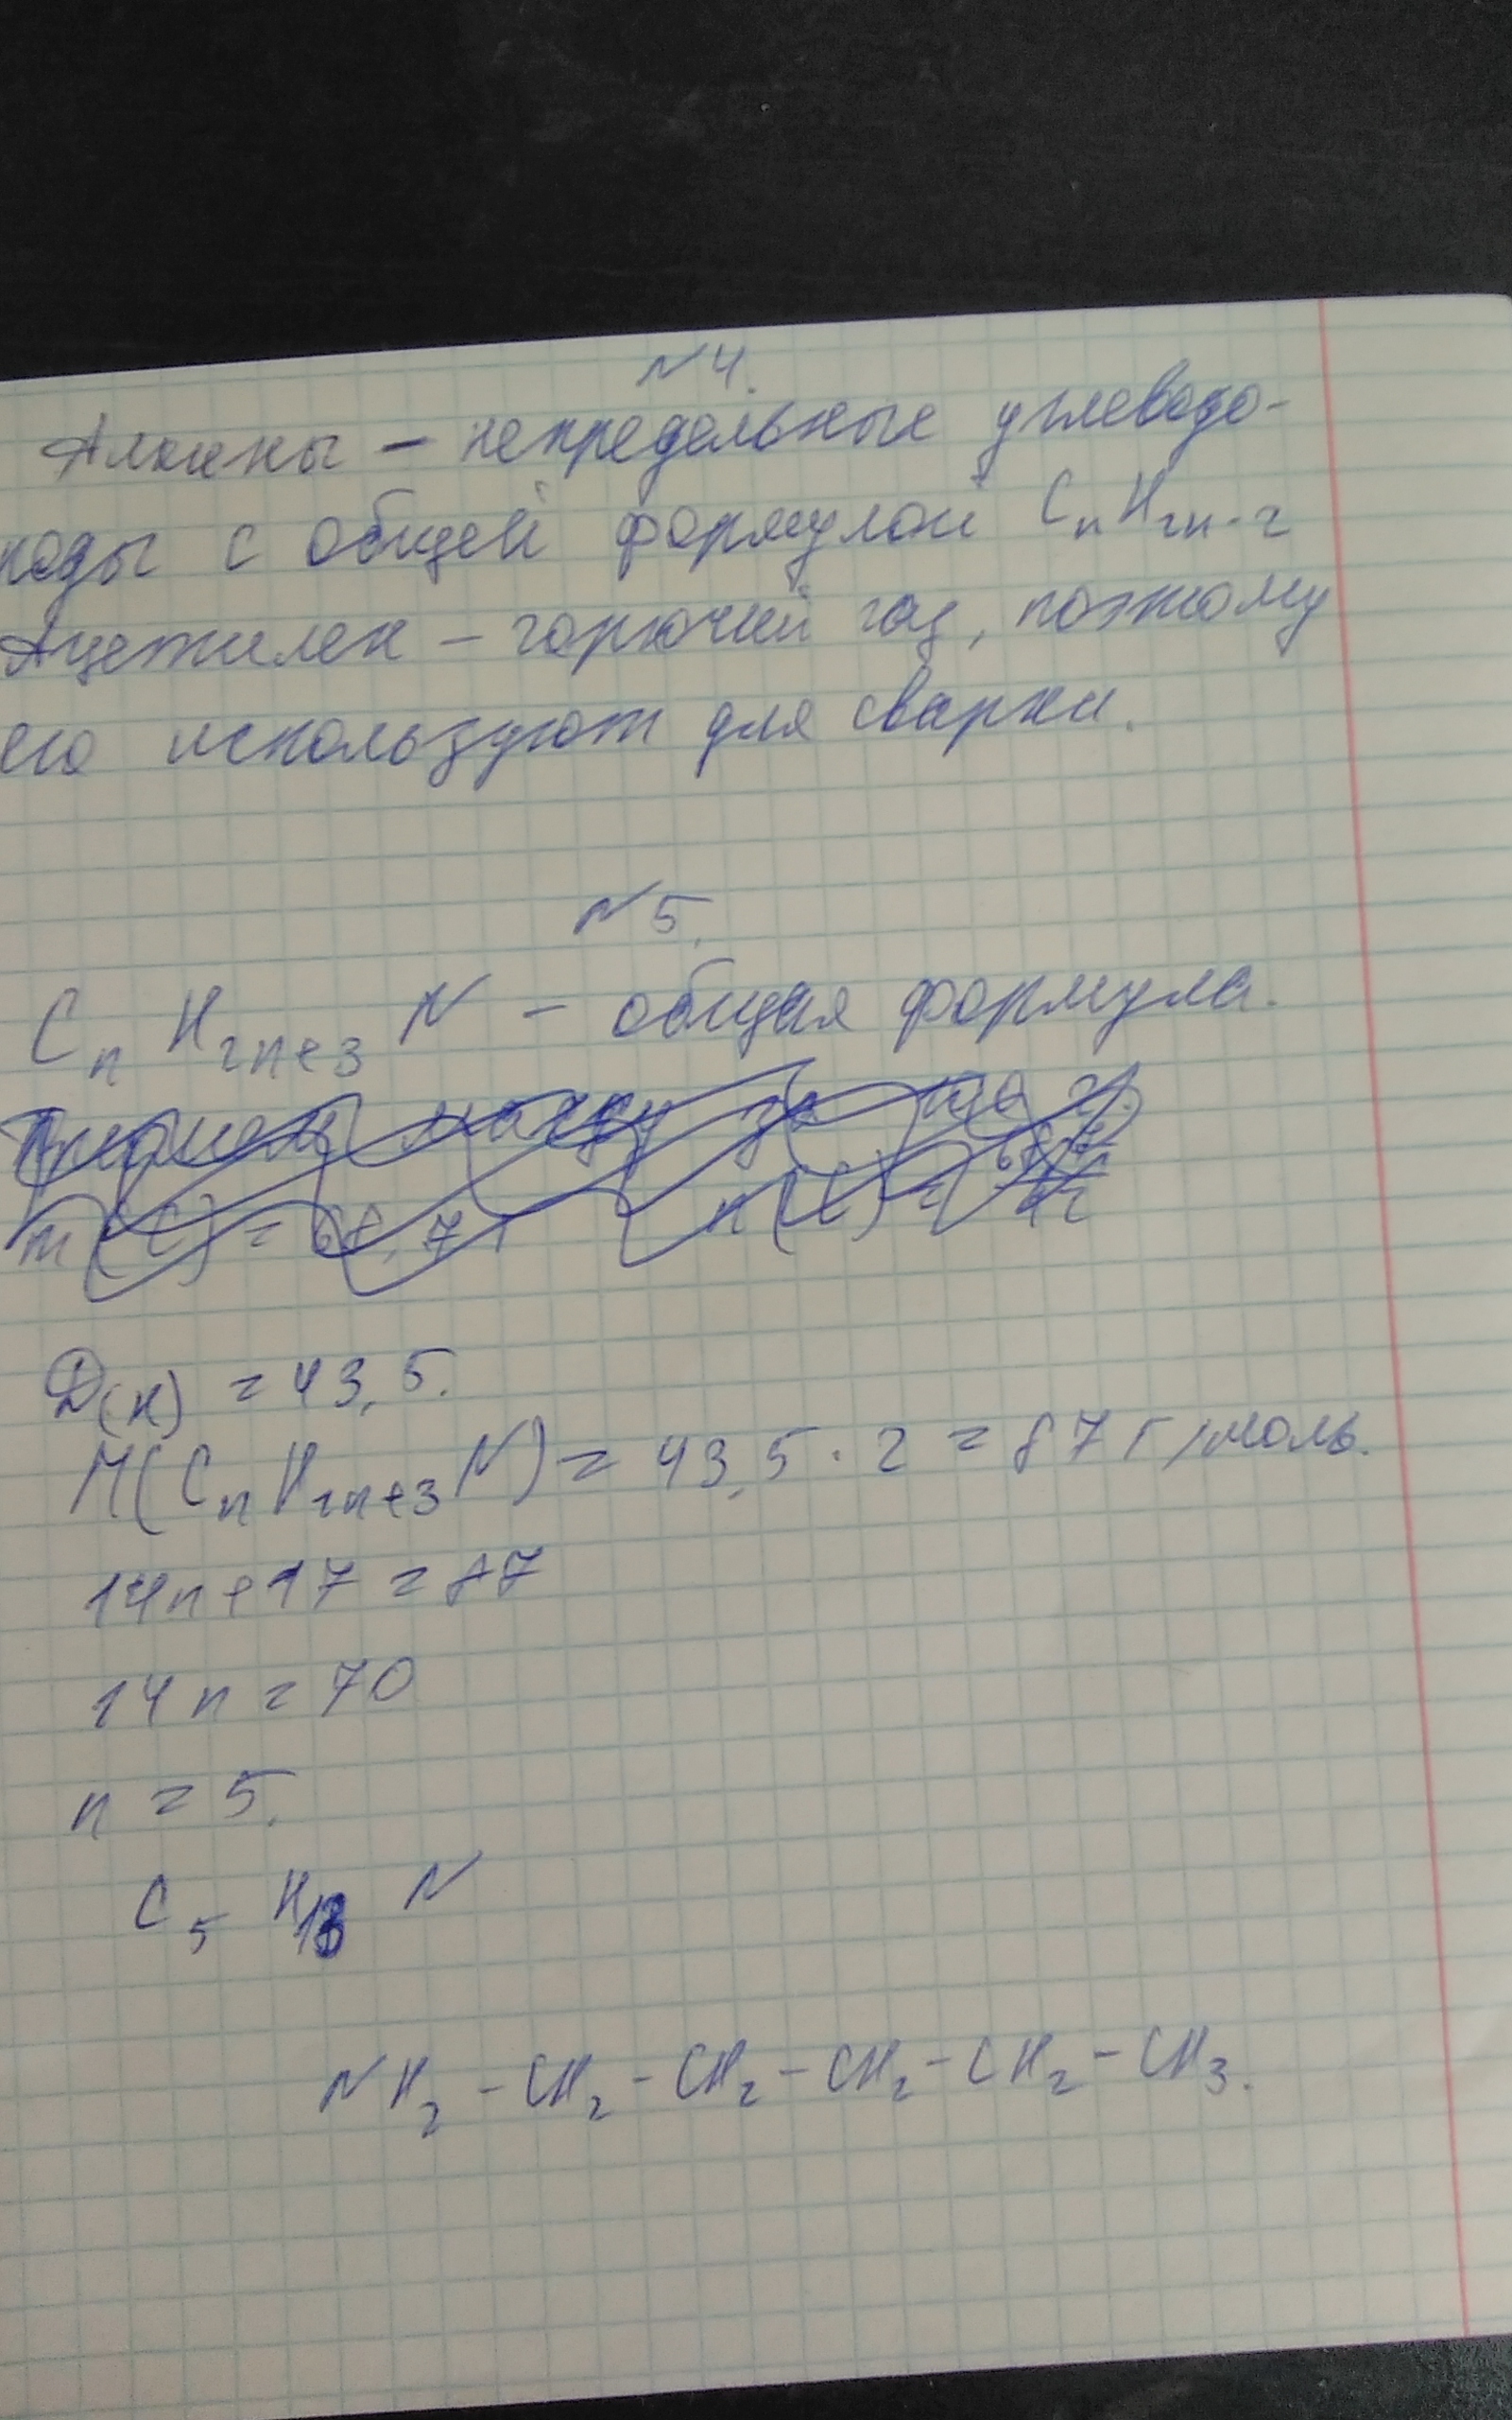 №4.
Алкины – непредельные углеводо-
роды с общей формулой CnH2n-2
Ацетилен – горючий газ, поэтому
его используют для сварки.
№5.
CnH2n+3N – общая формула.
m(C) = 68,7 г n(C) =
D(H) = 43,5.
M(CnH2n+3N) = 43,5 · 2 = 87 г/моль.
14n+17 = 87
14n = 70
n = 5.
C5H13N
NH2-CH2-CH2-CH2-CH2-CH3.